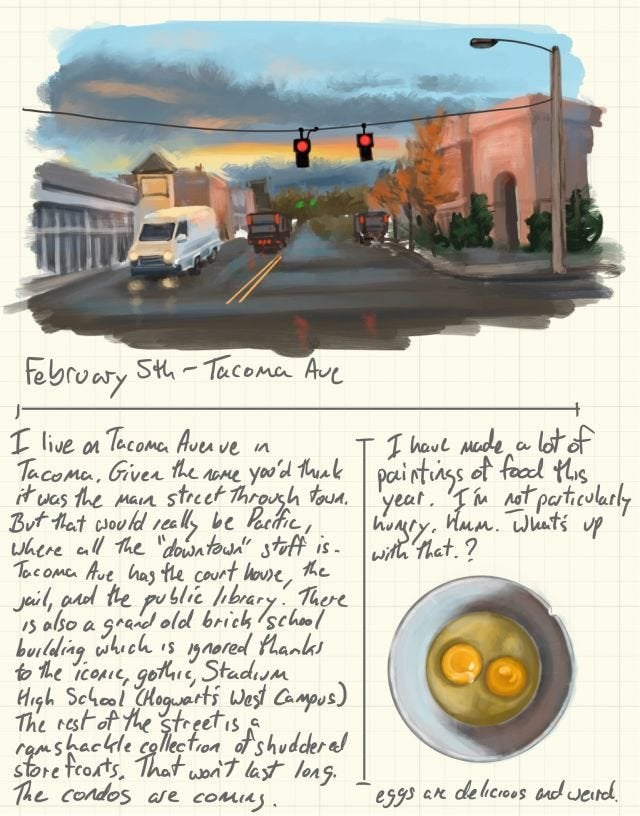 February 5th - Tacoma Ave
I live on Tacoma Avenue in
Tacoma. Given the name you'd think
it was the main street through town.
But that would really be Pacific,
where all the "downtown" stuff is.
Tacoma Ave has the court house, the
jail, and the public library. There
is also a grand old brick school
building which is ignored thanks
to the iconic, gothic, Stadium
High School (Hogwarts West Campus)
The rest of the street is a
ramshackle collection of shuddered
store fronts. That won't last long.
The condos are coming.
I have made a lot of
paintings of food this
year. I'm not particularly
hungry. Hmm. What's up
with that.?
eggs are delicious and weird.